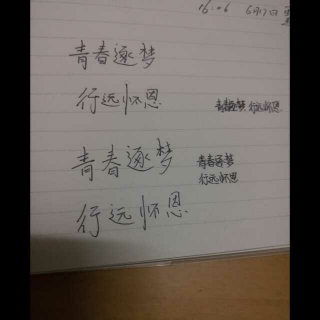 16:06 6月17日
青春逐梦
行远怀恩
青春逐梦 行远怀恩
青春逐梦
行远怀恩
青春逐梦
行远怀恩